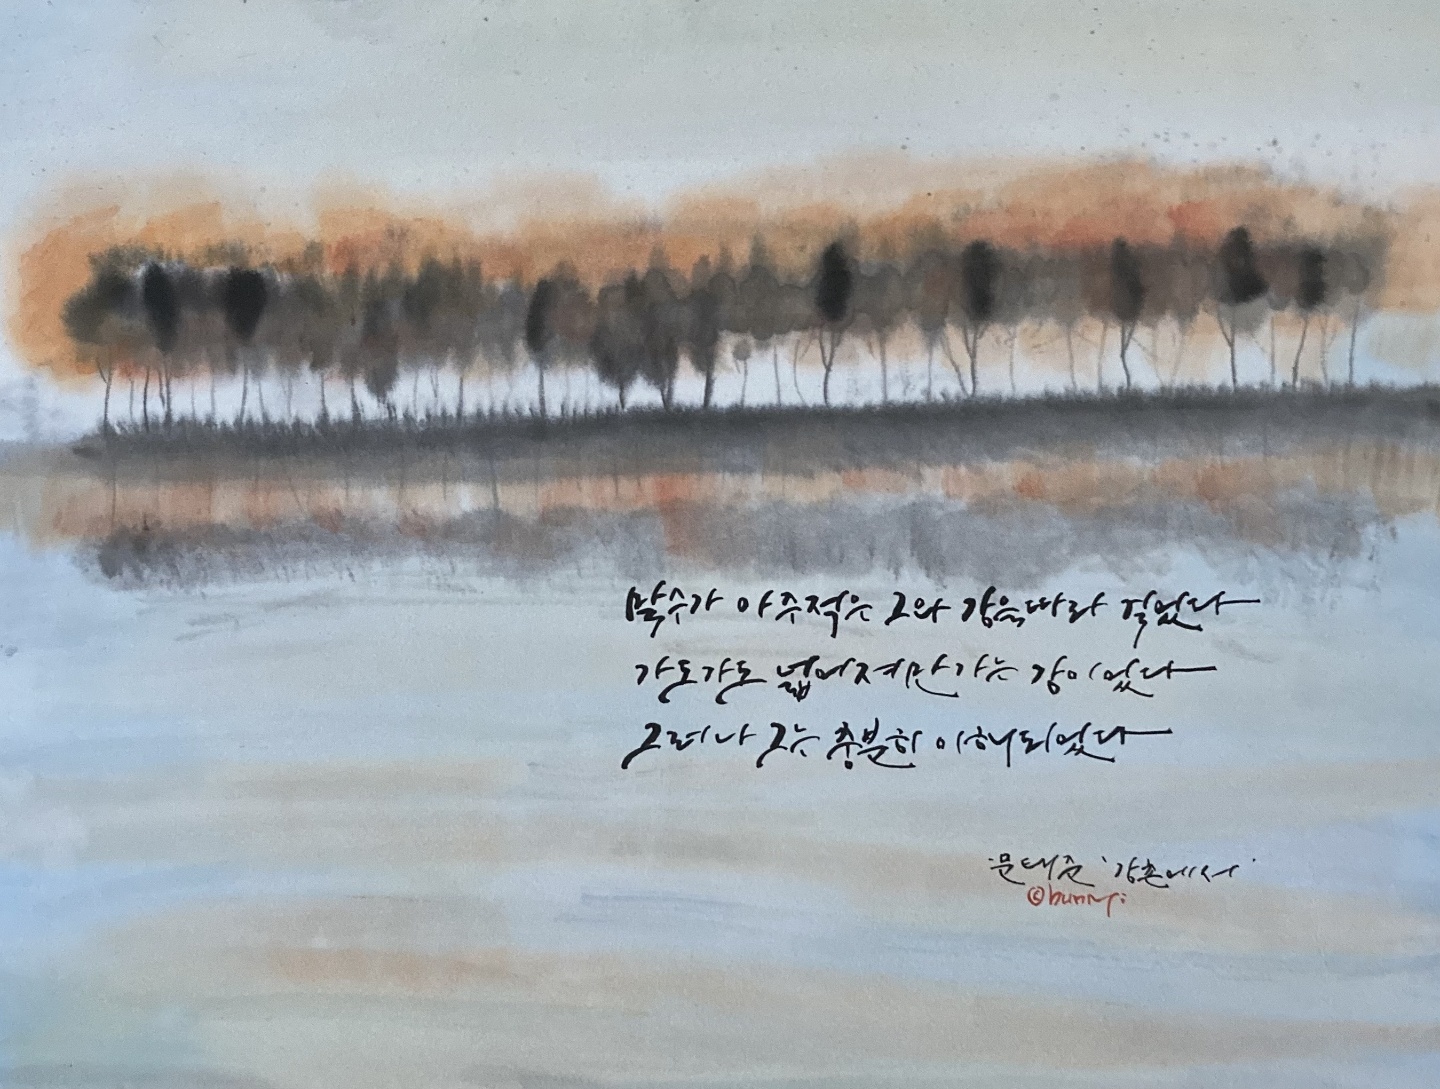 말수가 아주 적은 그와 강을 따라 걸었다
가도 가도 넓어져만 가는 강이었다
그러나 그는 충분히 이해되었다
문태준 '강촌에서'
©bunnyi